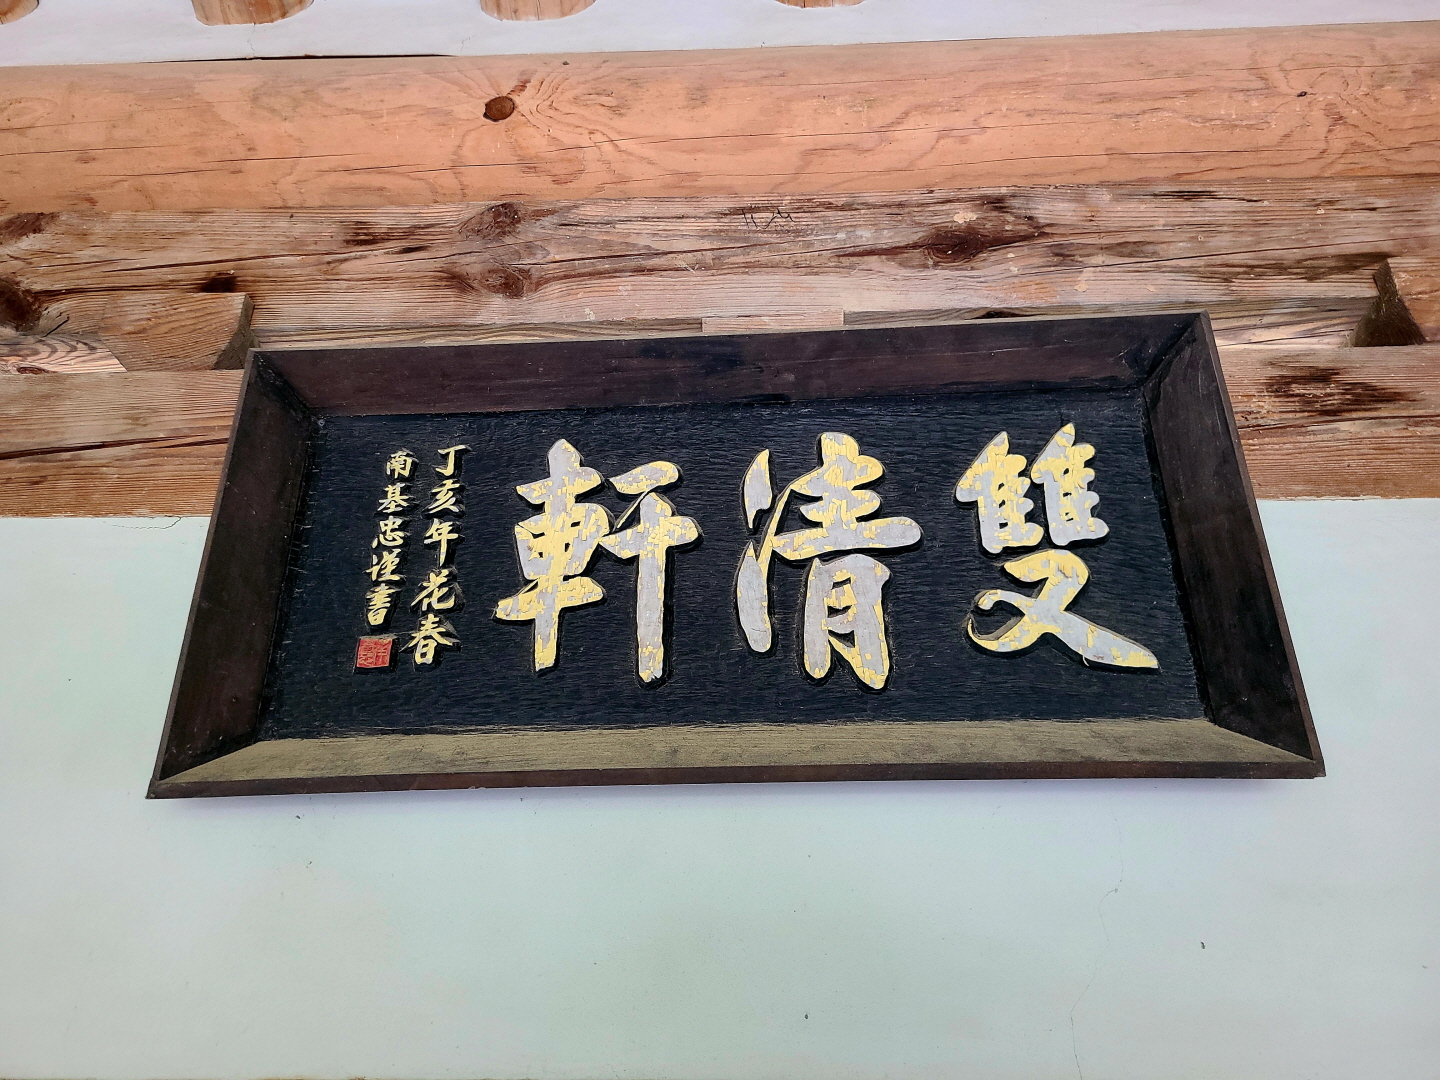 雙清軒
丁亥年花春
南基忠謹書